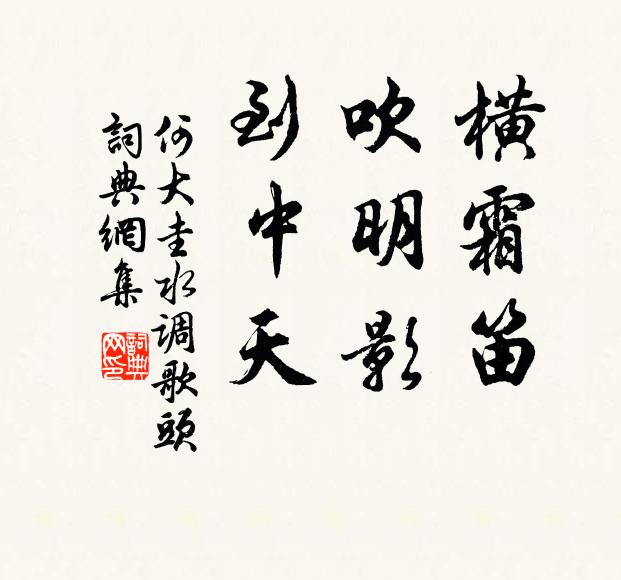 横霜笛
吹明影
到中天
何大圭水调歌頭
詞典網集
詞典网印